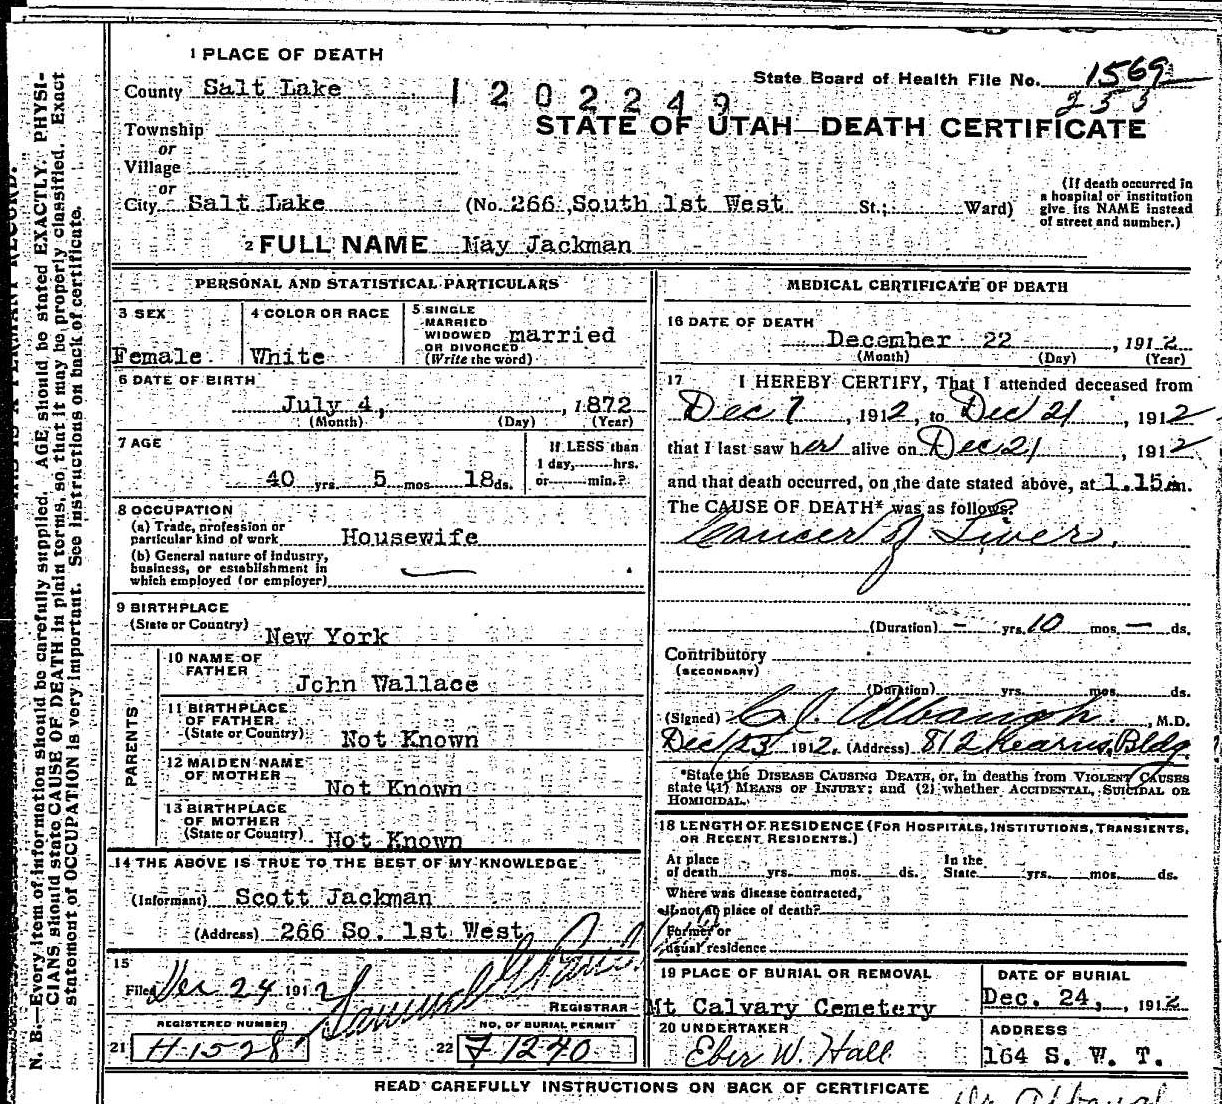 1 PLACE OF DEATH
County Salt Lake
1202249
State Board of Health File No. 1569
233
STATE OF UTAH—DEATH CERTIFICATE
Township
or
Village
or
City Salt Lake (No. 266, South 1st West St.; Ward)
(If death occurred in a hospital or institution give its NAME instead of street and number.)
2 FULL NAME May Jackman
PERSONAL AND STATISTICAL PARTICULARS
3 SEX
Female
4 COLOR OR RACE
White
5 SINGLE
MARRIED
WIDOWED
OR DIVORCED
(Write the word)
married
6 DATE OF BIRTH
July 4, , 1872
(Month) (Day) (Year)
7 AGE
40 yrs. 5 mos 18 ds.
If LESS than
1 day, hrs.
or min.?
8 OCCUPATION
(a) Trade, profession or
particular kind of work Housewife
(b) General nature of industry,
business, or establishment in
which employed (or employer)
9 BIRTHPLACE
(State or Country)
New York
PARENTS
10 NAME OF
FATHER
John Wallace
11 BIRTHPLACE
OF FATHER
(State or Country) Not Known
12 MAIDEN NAME
OF MOTHER
Not Known
13 BIRTHPLACE
OF MOTHER
(State or Country) Not Known
14 THE ABOVE IS TRUE TO THE BEST OF MY KNOWLEDGE
(Informant) Scott Jackman
(Address) 266 So. 1st West
15
Filed Dec 24 1912
REGISTRAR
REGISTERED NUMBER
21 H 1528
NO. OF BURIAL PERMIT
22 F 1240
MEDICAL CERTIFICATE OF DEATH
16 DATE OF DEATH
December 22 , 1912
(Month) (Day) (Year)
17 I HEREBY CERTIFY, That I attended deceased from
Dec 7, 1912, to Dec 21, 1912
that I last saw her alive on Dec 21, 1912
and that death occurred, on the date stated above, at 1.15 a m.
The CAUSE OF DEATH* was as follows:
Cancer of Liver.
(Duration) — yrs. 10 mos. — ds.
Contributory
(SECONDARY)
(Duration) yrs. mos. ds.
(Signed) C. J. Albaugh, M.D.
Dec 23 1912. (Address) 812 Kearns Bldg
*State the DISEASE CAUSING DEATH, or, in deaths from VIOLENT CAUSES
state (1) MEANS OF INJURY; and (2) whether ACCIDENTAL, SUICIDAL OR
HOMICIDAL.
18 LENGTH OF RESIDENCE (FOR HOSPITALS, INSTITUTIONS, TRANSIENTS,
OR RECENT RESIDENTS.)
At place
of death yrs. mos. ds.
In the
State yrs. mos. ds.
Where was disease contracted,
if not at place of death?
Former or
usual residence
19 PLACE OF BURIAL OR REMOVAL
Mt Calvary Cemetery
DATE OF BURIAL
Dec. 24, , 1912
20 UNDERTAKER
Eber W. Hall
ADDRESS
164 S. W. T.
READ CAREFULLY INSTRUCTIONS ON BACK OF CERTIFICATE
N. B.—Every item of information should be carefully supplied. AGE should be stated EXACTLY. PHYSI-
CIANS should state CAUSE OF DEATH in plain terms, so that it may be properly classified. Exact
statement of OCCUPATION is very important. See instructions on back of certificate.